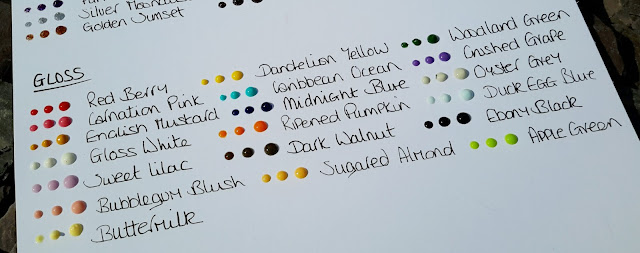 Silver
Golden Sunset
GLOSS
Red Berry
Carnation Pink
English Mustard
Gloss White
Sweet Lilac
Bubblegum Blush
Buttermilk
Dandelion Yellow
Caribbean Ocean
Midnight Blue
Ripened Pumpkin
Dark Walnut
Sugared Almond
Woodland Green
Crushed Grape
Oyster Grey
Duck EGG Blue
Ebony Black
Apple Green